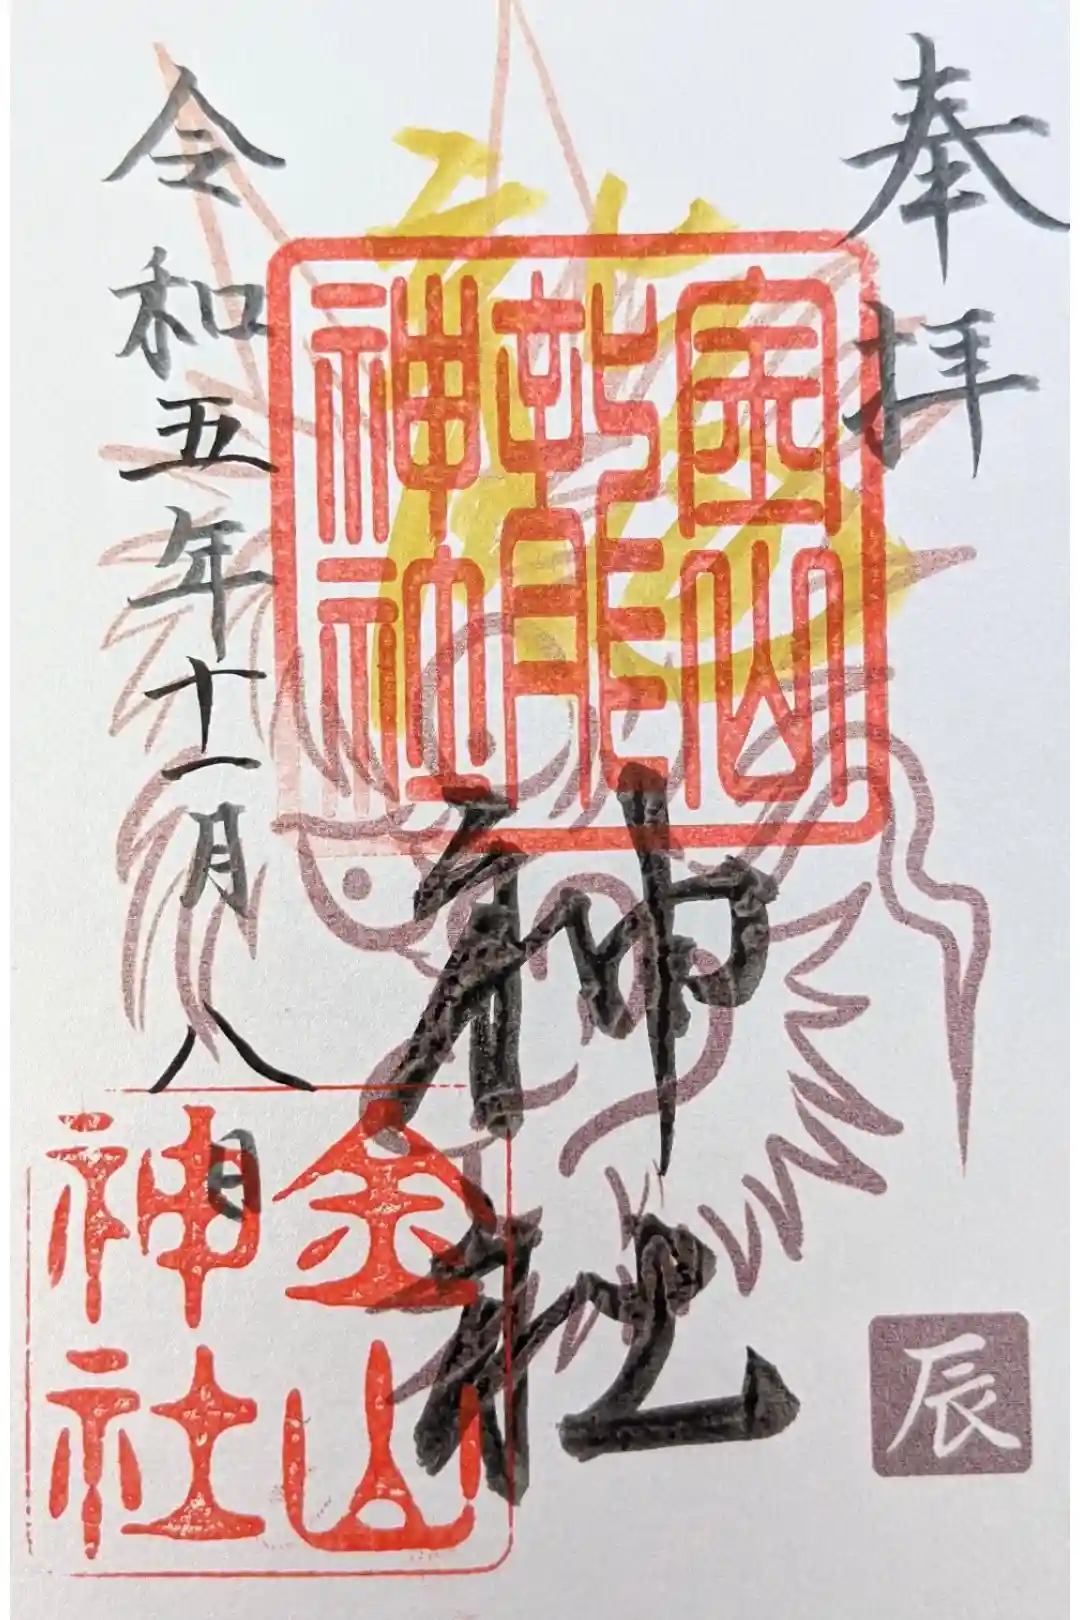 奉拝
金山龍神社
龍神社
令和五年十一月八日
金山神社
辰